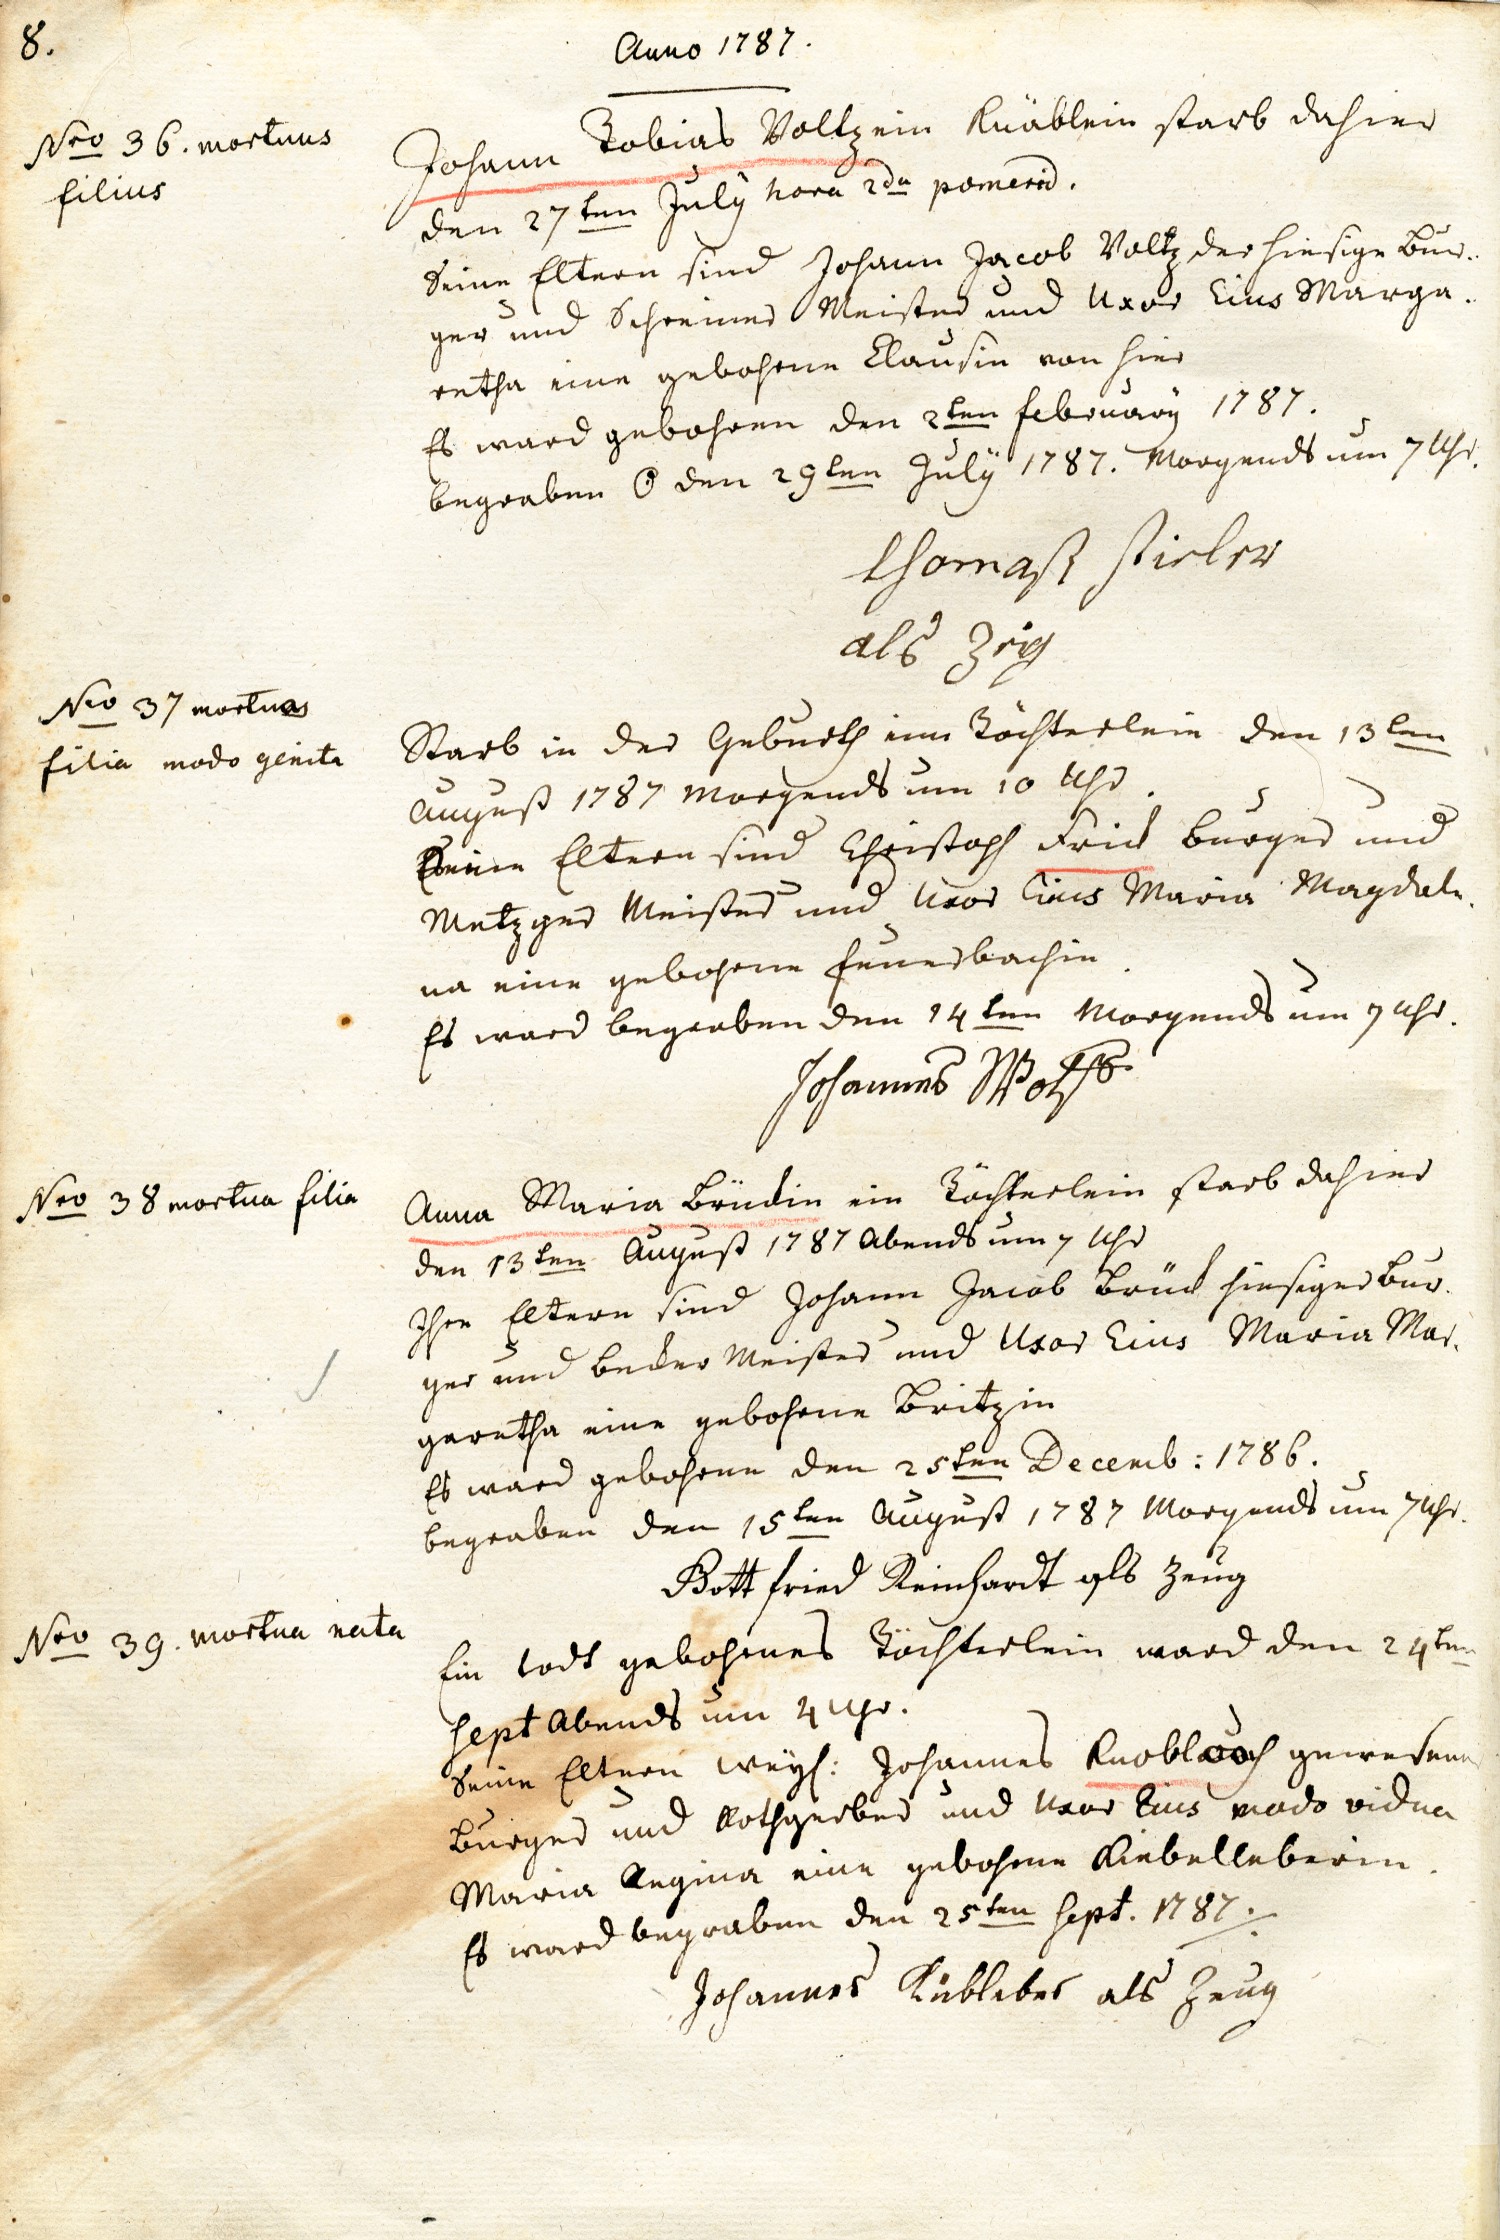 8.
Anno 1787.
Nro 36. mortuus
filius
Johann Tobias Voltz ein Knäblein starb dahier
den 27ten July hora 2da pomerid.
Seine Eltern sind Johann Jacob Voltz der hiesige Bur-
ger und Schreiner Meister und Uxor Eius Marga-
retha eine gebohrne Clausin von hier
Es ward gebohren den 2ten February 1787.
begraben den 29ten July 1787. Morgends um 7 Uhr.
Thomaß Stieler
als Zeig
Nro 37 mortua
filia modo genita
Starb in der Geburth ein Töchterlein den 13ten
August 1787 Morgends um 10 Uhr.
Seine Eltern sind Christoph Frick Burger und
Metzger Meister und Uxor Eius Maria Magdale-
na eine gebohrne Feuerbachin.
Es ward begraben den 14ten Morgends um 7 Uhr.
Johannes Wolff
Nro 38 mortua filia
Anna Maria Brückin ein Töchterlein starb dahier
den 13ten August 1787 Abends um 7 Uhr
Ihre Eltern sind Johann Jacob Brück hiesiger Bur-
ger und Becker Meister und Uxor Eius Maria Mar-
garetha eine gebohrne Britzin
Es ward gebohren den 25ten Decemb: 1786.
begraben den 15ten August 1787 Morgends um 7 Uhr.
Gottfried Reinhardt als Zeug
Nro 39. mortua nata
Ein todt gebohrnes Töchterlein ward den 24ten
Sept Abends um 4 Uhr.
Seine Eltern weyl: Johannes Knobloch gewesener
Burger und Rothgerber und Uxor Eius modo vidua
Maria Regina eine gebohrne Kiebelleberin.
Es ward begraben den 25ten Sept. 1787.
Johannes Kübleber als Zeug